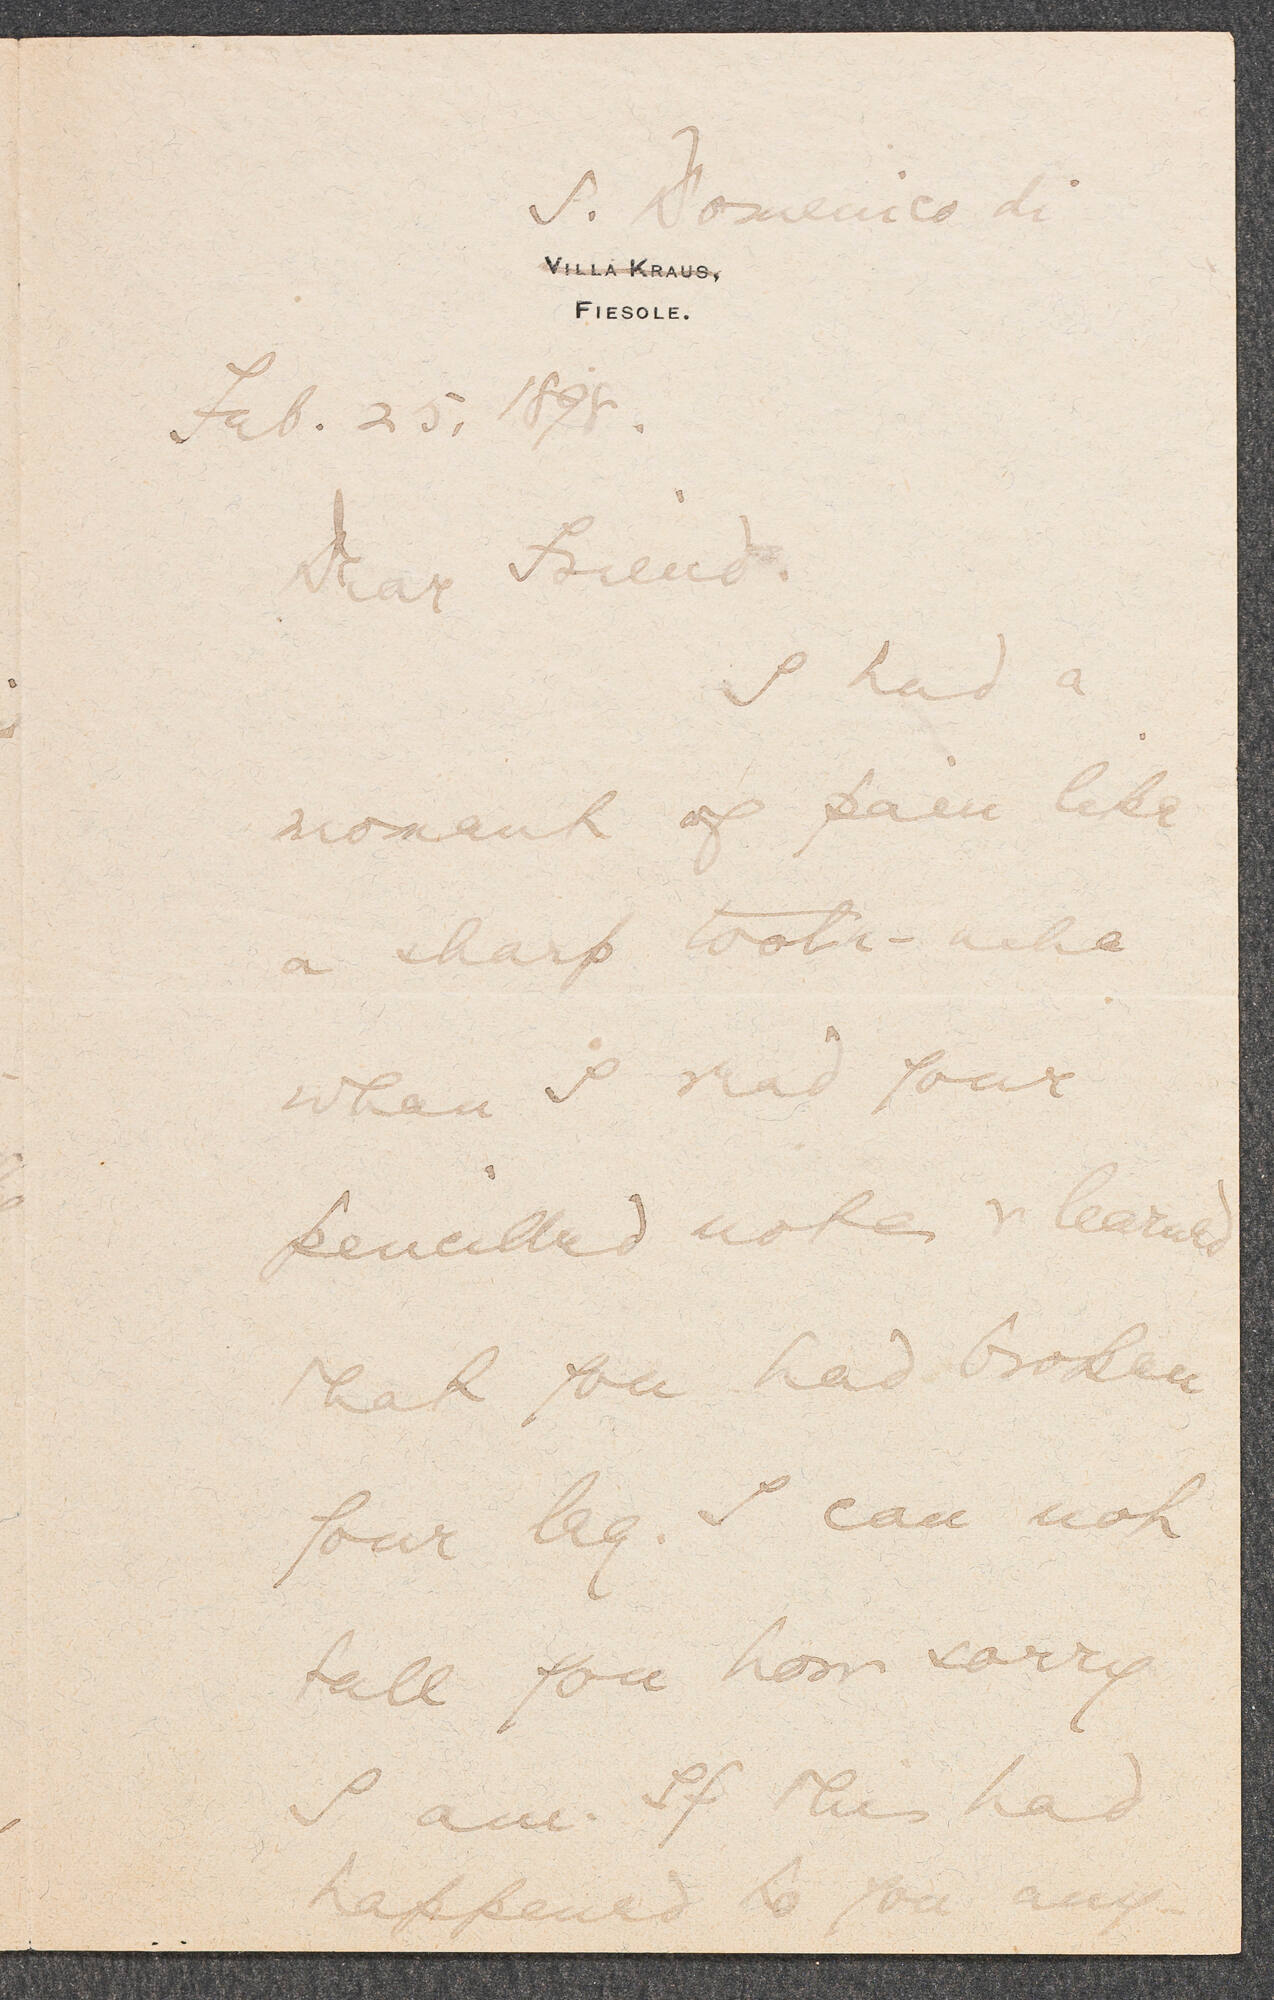 S. Domenico di
VILLA KRAUS,
FIESOLE.
Feb. 25, 1898.
Dear Friend.
I had a
moment of pain like
a sharp tooth-ache
when I read your
pencilled note & learned
that you had broken
your leg. I can not
tell you how sorry
I am. If this had
happened to you any-